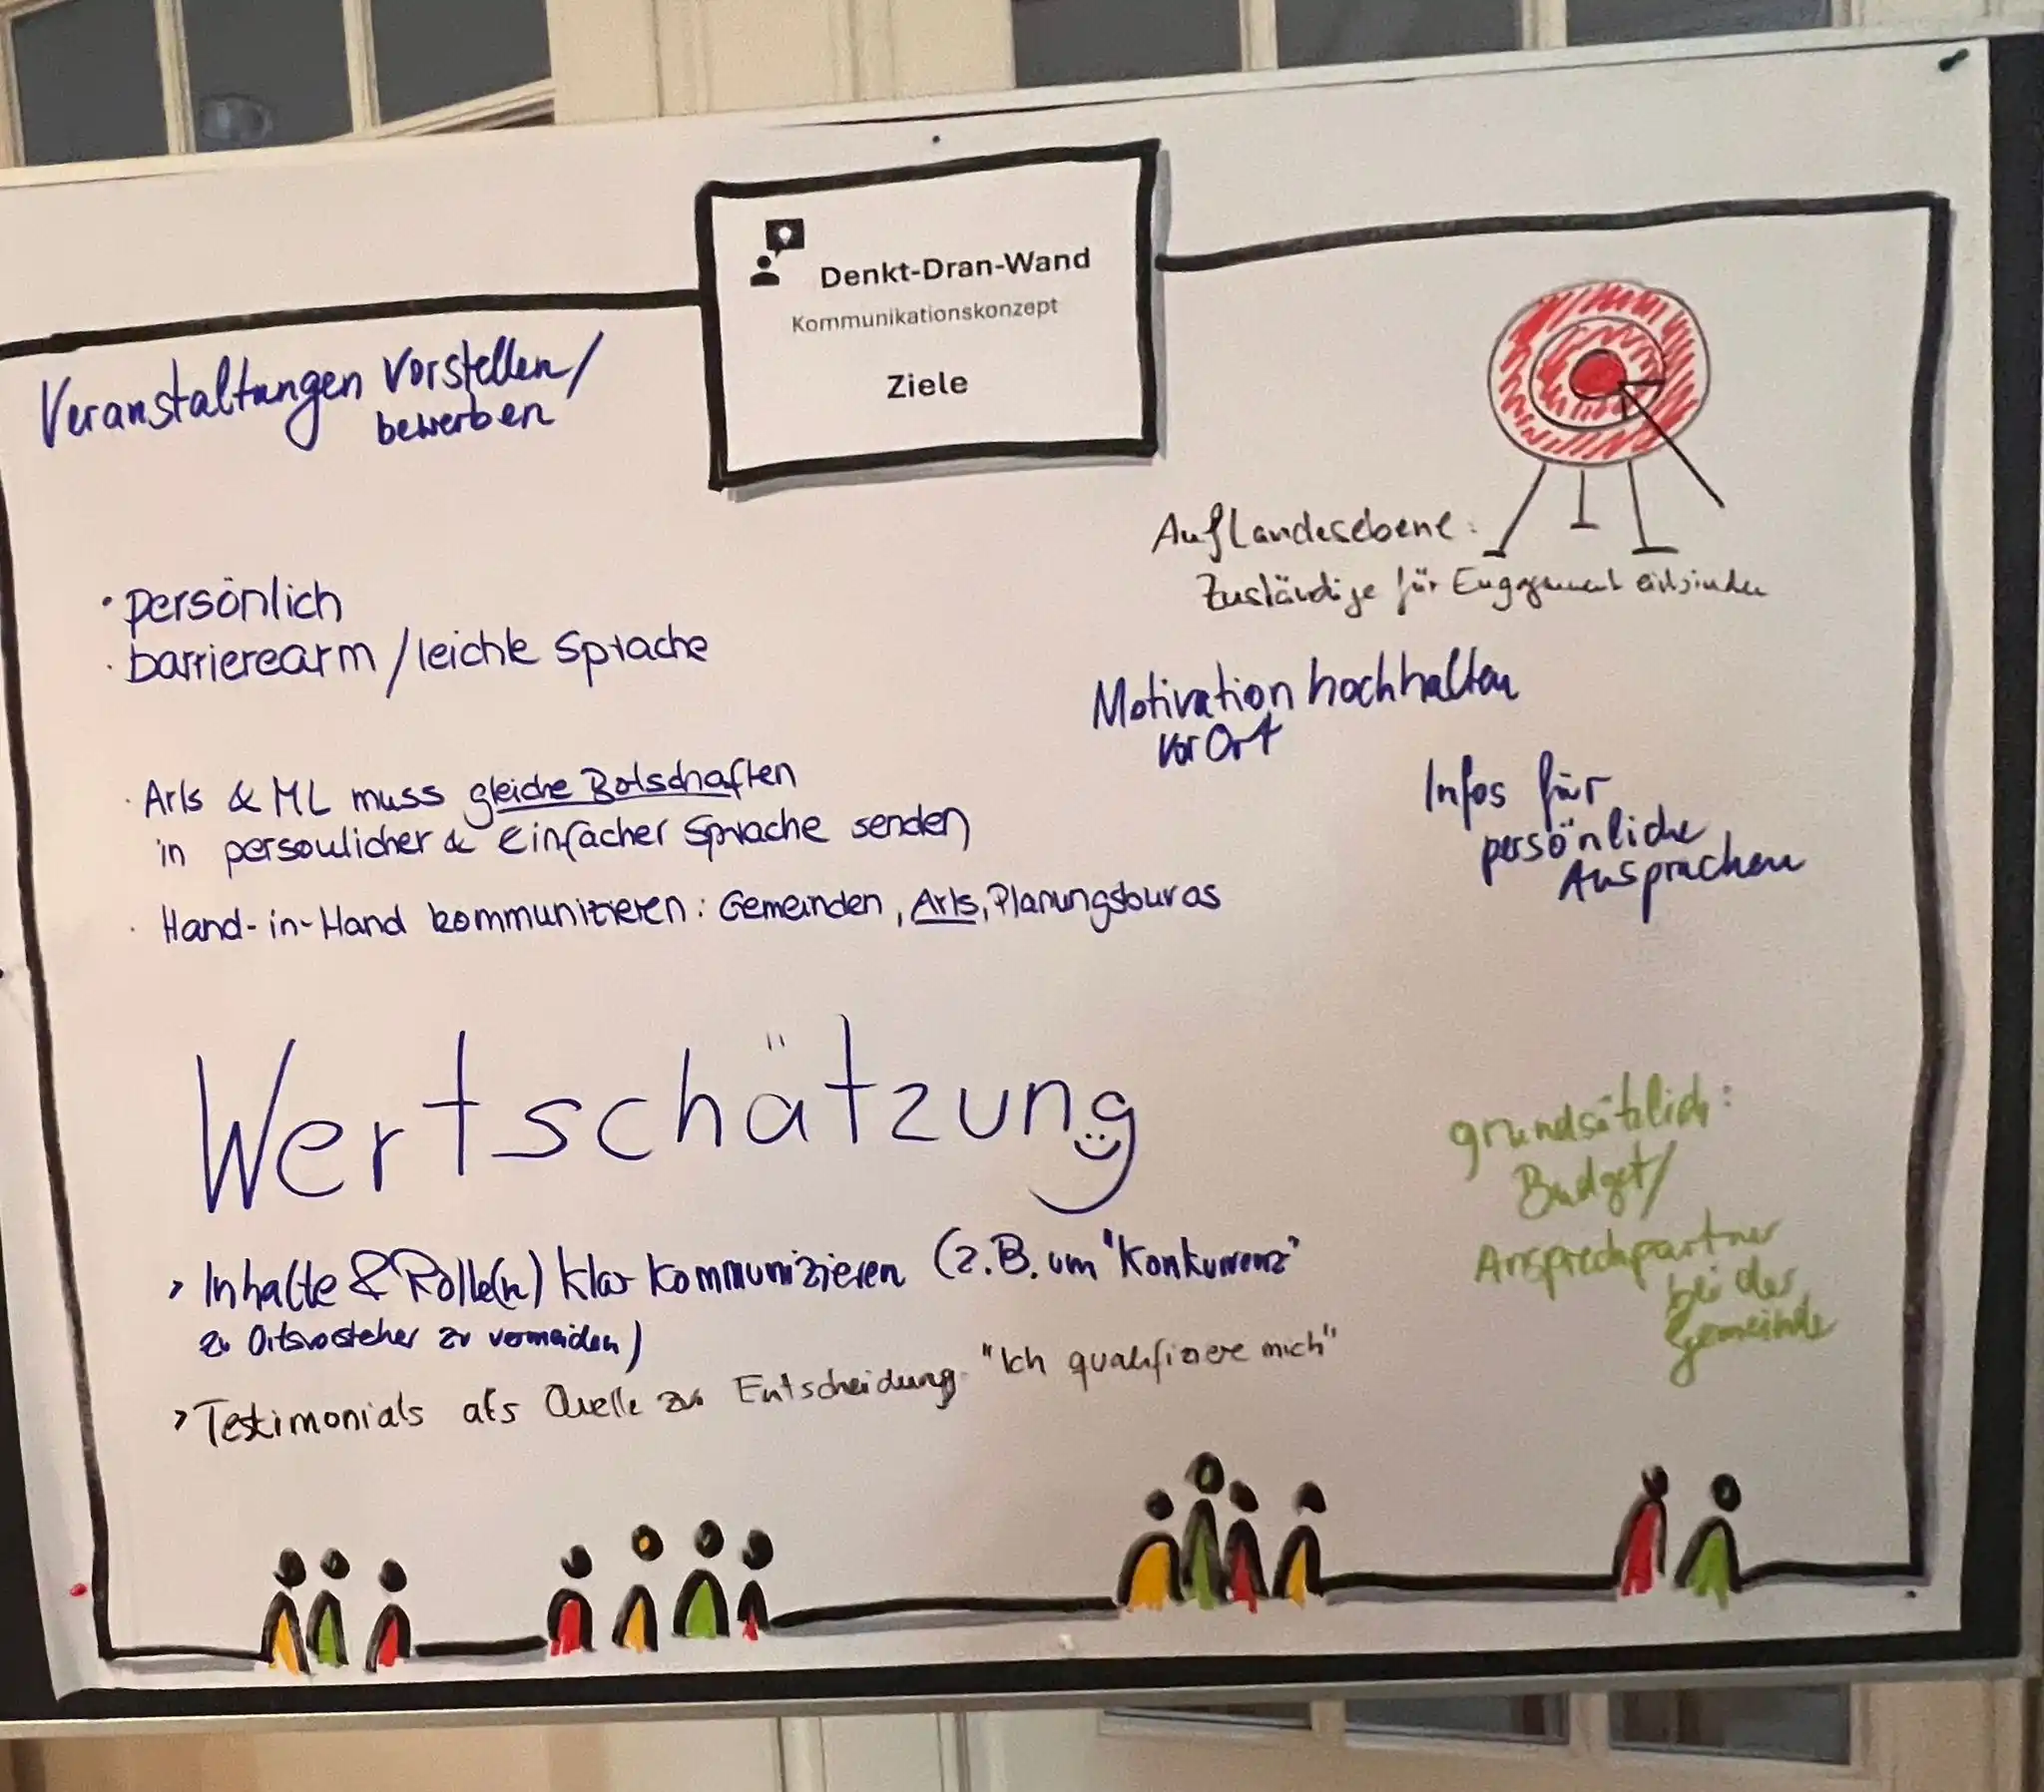 Denkt-Dran-Wand
Kommunikationskonzept
Ziele
Veranstaltungen vorstellen/
bewerben
Auf Landesebene:
Zuständige für Engagement einbinden
· persönlich
· barrierearm / leichte Sprache
Motivation hochhalten
vor Ort
Infos für
persönliche
Ansprachen
· ArLs & ML muss gleiche Botschaften
in persönlicher & einfacher Sprache senden
· Hand-in-Hand kommunizieren: Gemeinden, ArLs, Planungsbüros
Wertschätzung
> Inhalte & Rolle(n) klar kommunizieren (z.B. um "Konkurrenz"
zu Ortsvorsteher zu vermeiden)
> Testimonials als Quelle zur Entscheidung "Ich qualifiziere mich"
grundsätzlich:
Budget/
Ansprechpartner
bei der
Gemeinde